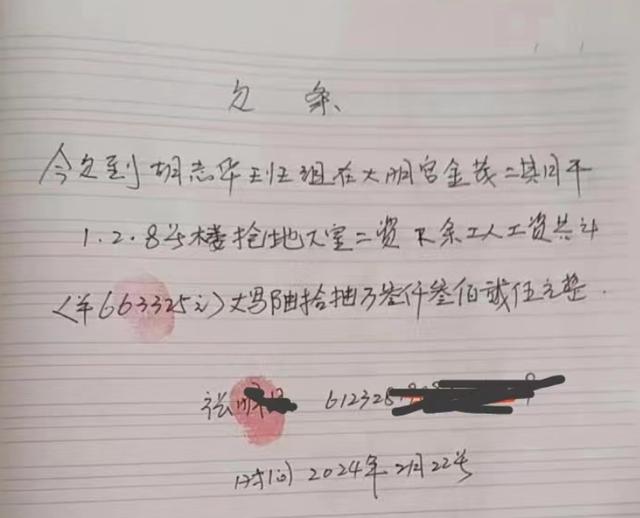 欠条
今欠到胡志华班组在大明宫金茂二期内干
1.2.8号楼抢地下室二资欠条工人工资共计
(￥663325元)大写陆拾陆万叁仟叁佰贰伍元整.
张 612328
时间2024年2月22号